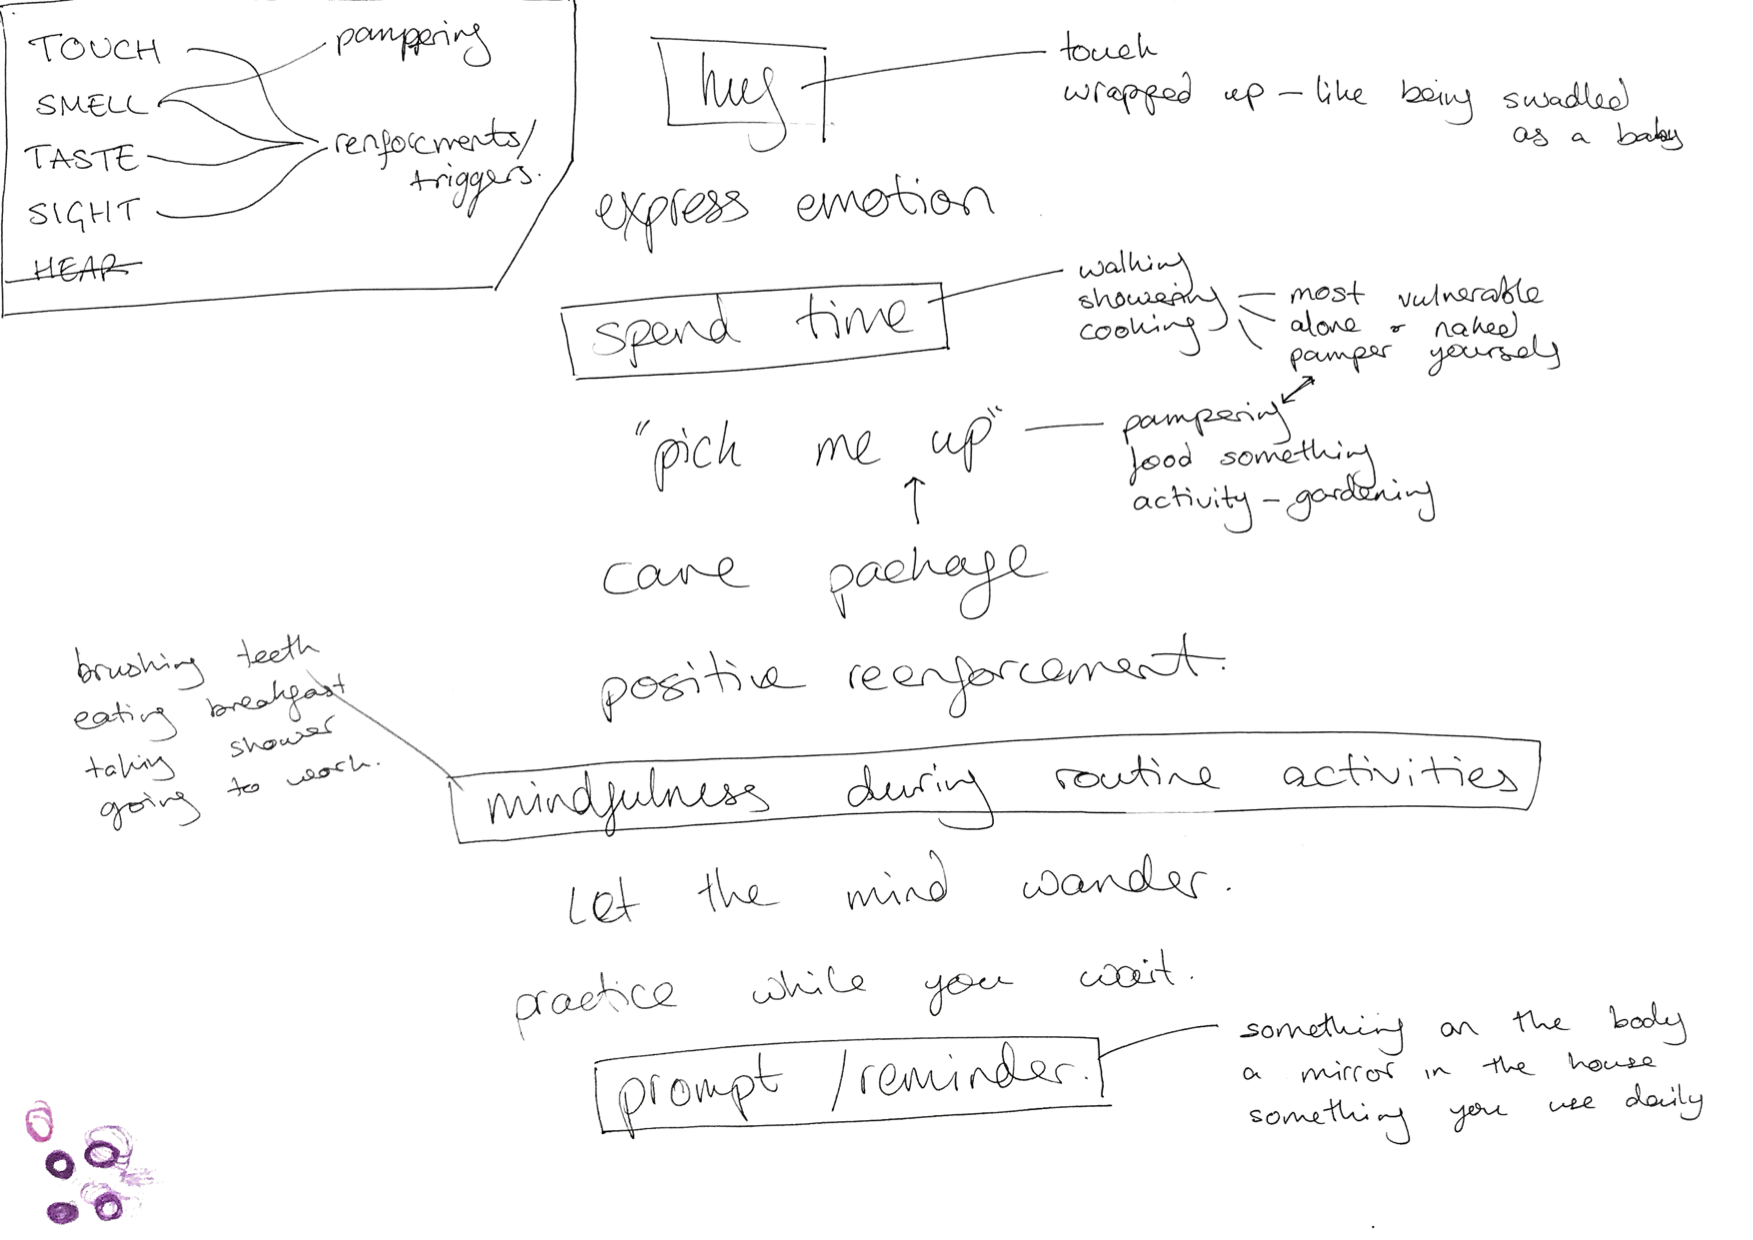 TOUCH
SMELL
TASTE
SIGHT
HEAR
pampering
renforcments/
triggers.
hug
touch
wrapped up – like being swadled
as a baby
express emotion
spend time
walking
showering – most vulnerable
cooking
alone or naked
pamper yourself
"pick me up"
pampering
food something
activity – gardening
care package
positive reenforcement.
brushing teeth
eating breakfast
taking shower
going to work.
mindfulness during routine activities
Let the mind wander.
practice while you wait.
prompt /reminder.
something on the body
a mirror in the house
something you use daily